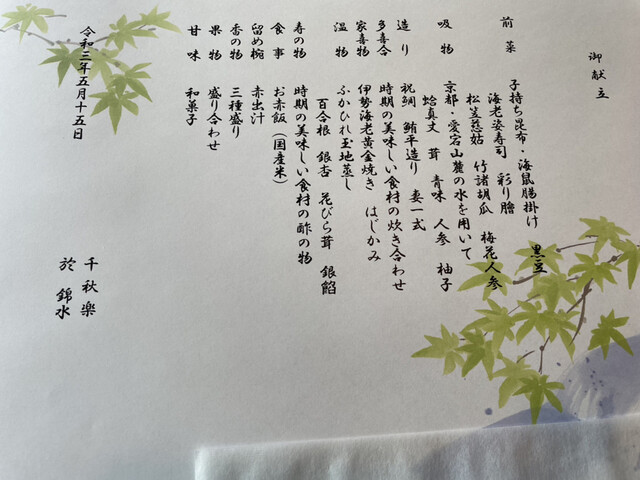 御献立
前菜 子持ち昆布・海鼠腸掛け 黒豆
海老姿寿司 彩り膾
松笠慈姑 竹諸胡瓜 梅花人参
吸物 京都・愛宕山麓の水を用いて
蛤真丈 茸 青味 人参 柚子
造り 祝鯛 鮪平造り 妻一式
多喜合 時期の美味しい食材の炊き合わせ
家喜物 伊勢海老黄金焼き はじかみ
温物 ふかひれ玉地蒸し
百合根 銀杏 花びら茸 銀餡
寿の物 時期の美味しい食材の酢の物
食事 お赤飯（国産米）
留め椀 赤出汁
香の物 三種盛り
果物 盛り合わせ
甘味 和菓子
令和三年五月十五日
千秋楽
於 錦水